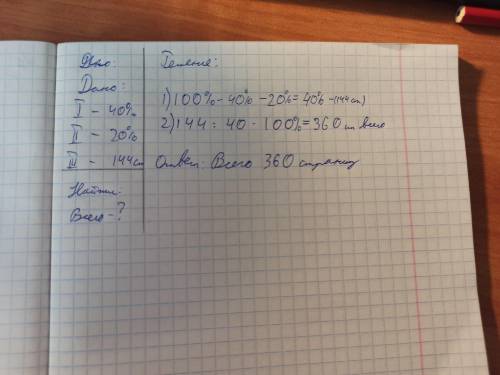 Дано:
Дано:
I - 40%
II - 20%
III - 144 ст
Найти:
Всего - ?
Решение:
1) 100% - 40% - 20% = 40% - (144 ст)
2) 144 : 40 · 100% = 360 ст всего
Ответ: Всего 360 страниц